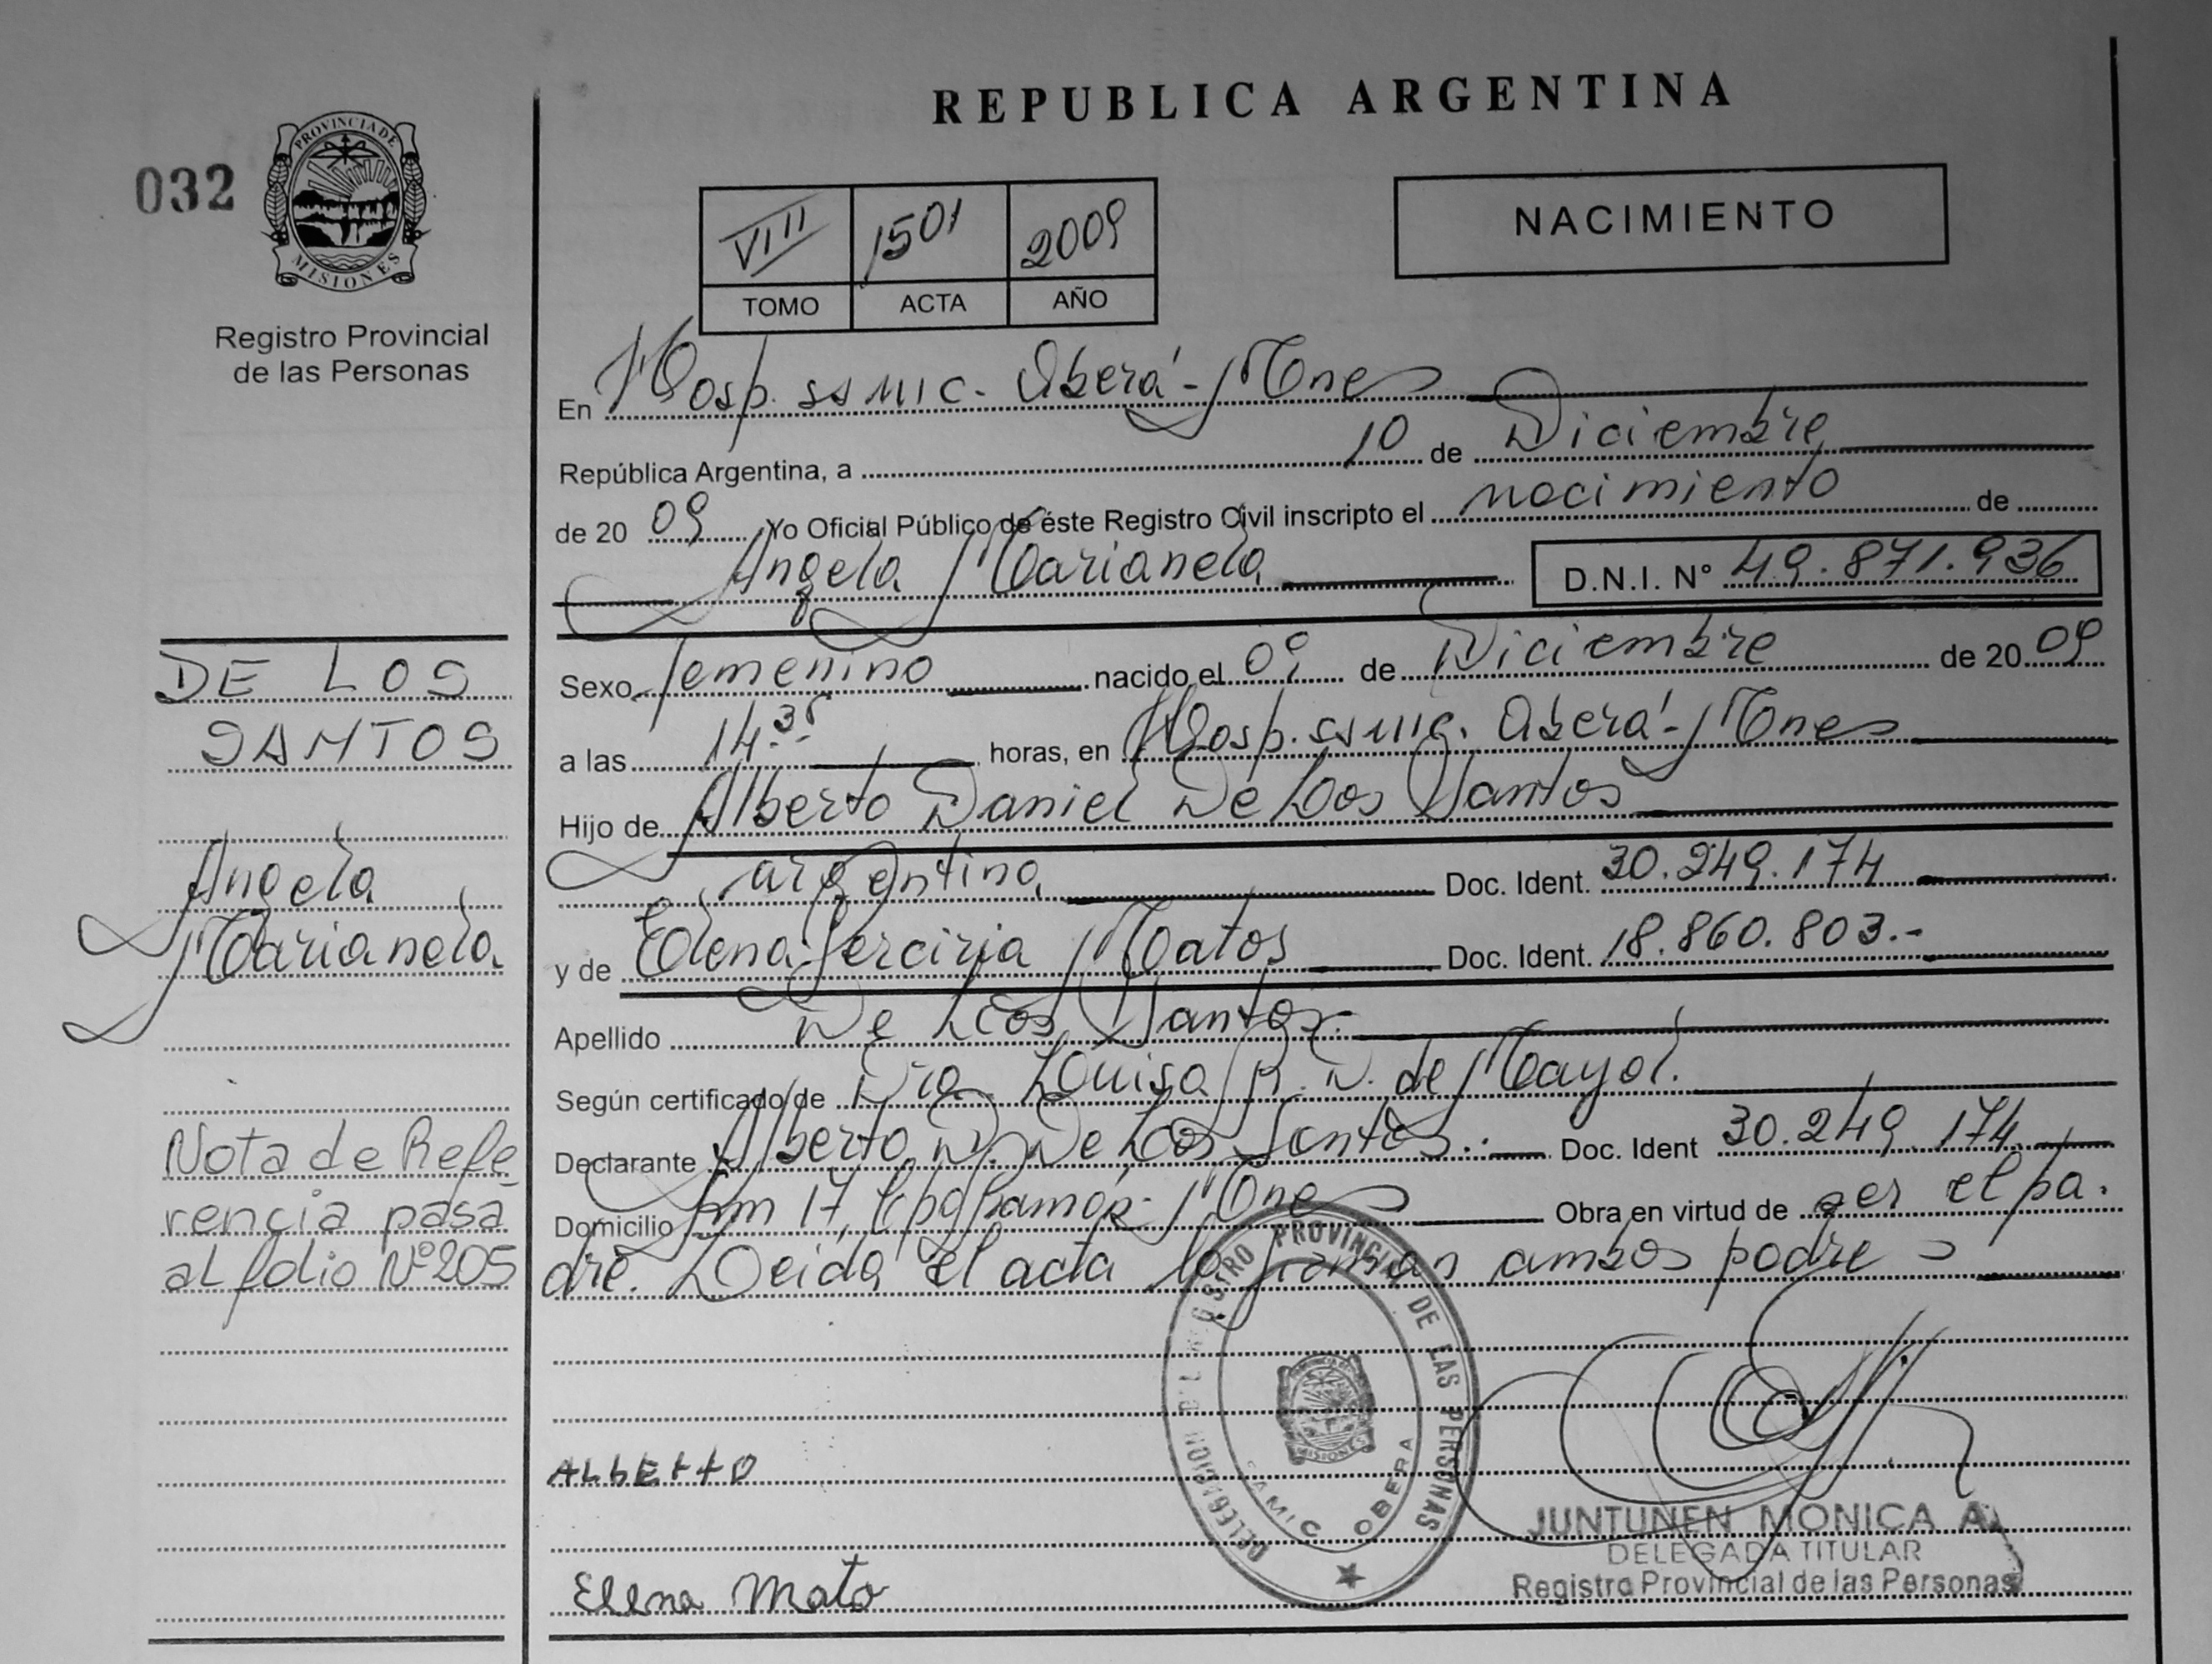 REPUBLICA ARGENTINA
032
PROVINCIA DE
MISIONES
Registro Provincial
de las Personas
VIII 1501 2009
TOMO ACTA AÑO
NACIMIENTO
En Hosp. SSMIC. Oberá - Mnes
República Argentina, a 10 de Diciembre
de 2009 Yo Oficial Público de éste Registro Civil inscripto el nacimiento de
Angela Marianela D.N.I. Nº 49.871.936
Sexo femenino nacido el 09 de Diciembre de 2009
a las 14.35 horas, en Hosp. SSMIC. Oberá - Mnes
Hijo de Alberto Daniel De Los Santos
argentino Doc. Ident. 30.249.174
y de Elena Matos Doc. Ident. 18.860.803.-
Apellido De Los Santos.
Según certificado de Dra. Luisa R. D. de Mayol.
Declarante Alberto D. De Los Santos.- Doc. Ident 30.249.174
Domicilio Km 17, Cpo Ramón - Mnes Obra en virtud de ser el pa.
dre. Leída el acta la firman ambos padres
DE LOS
SANTOS
Angela
Marianela
Nota de Refe
rencia pasa
al folio Nº 205
ALBERTO
Elena Mato
PROVINCIAL DE LAS PERSONAS
DELEGACION
SAMIC OBERA
MISIONES
JUNTUNEN MONICA A.
DELEGADA TITULAR
Registro Provincial de las Personas